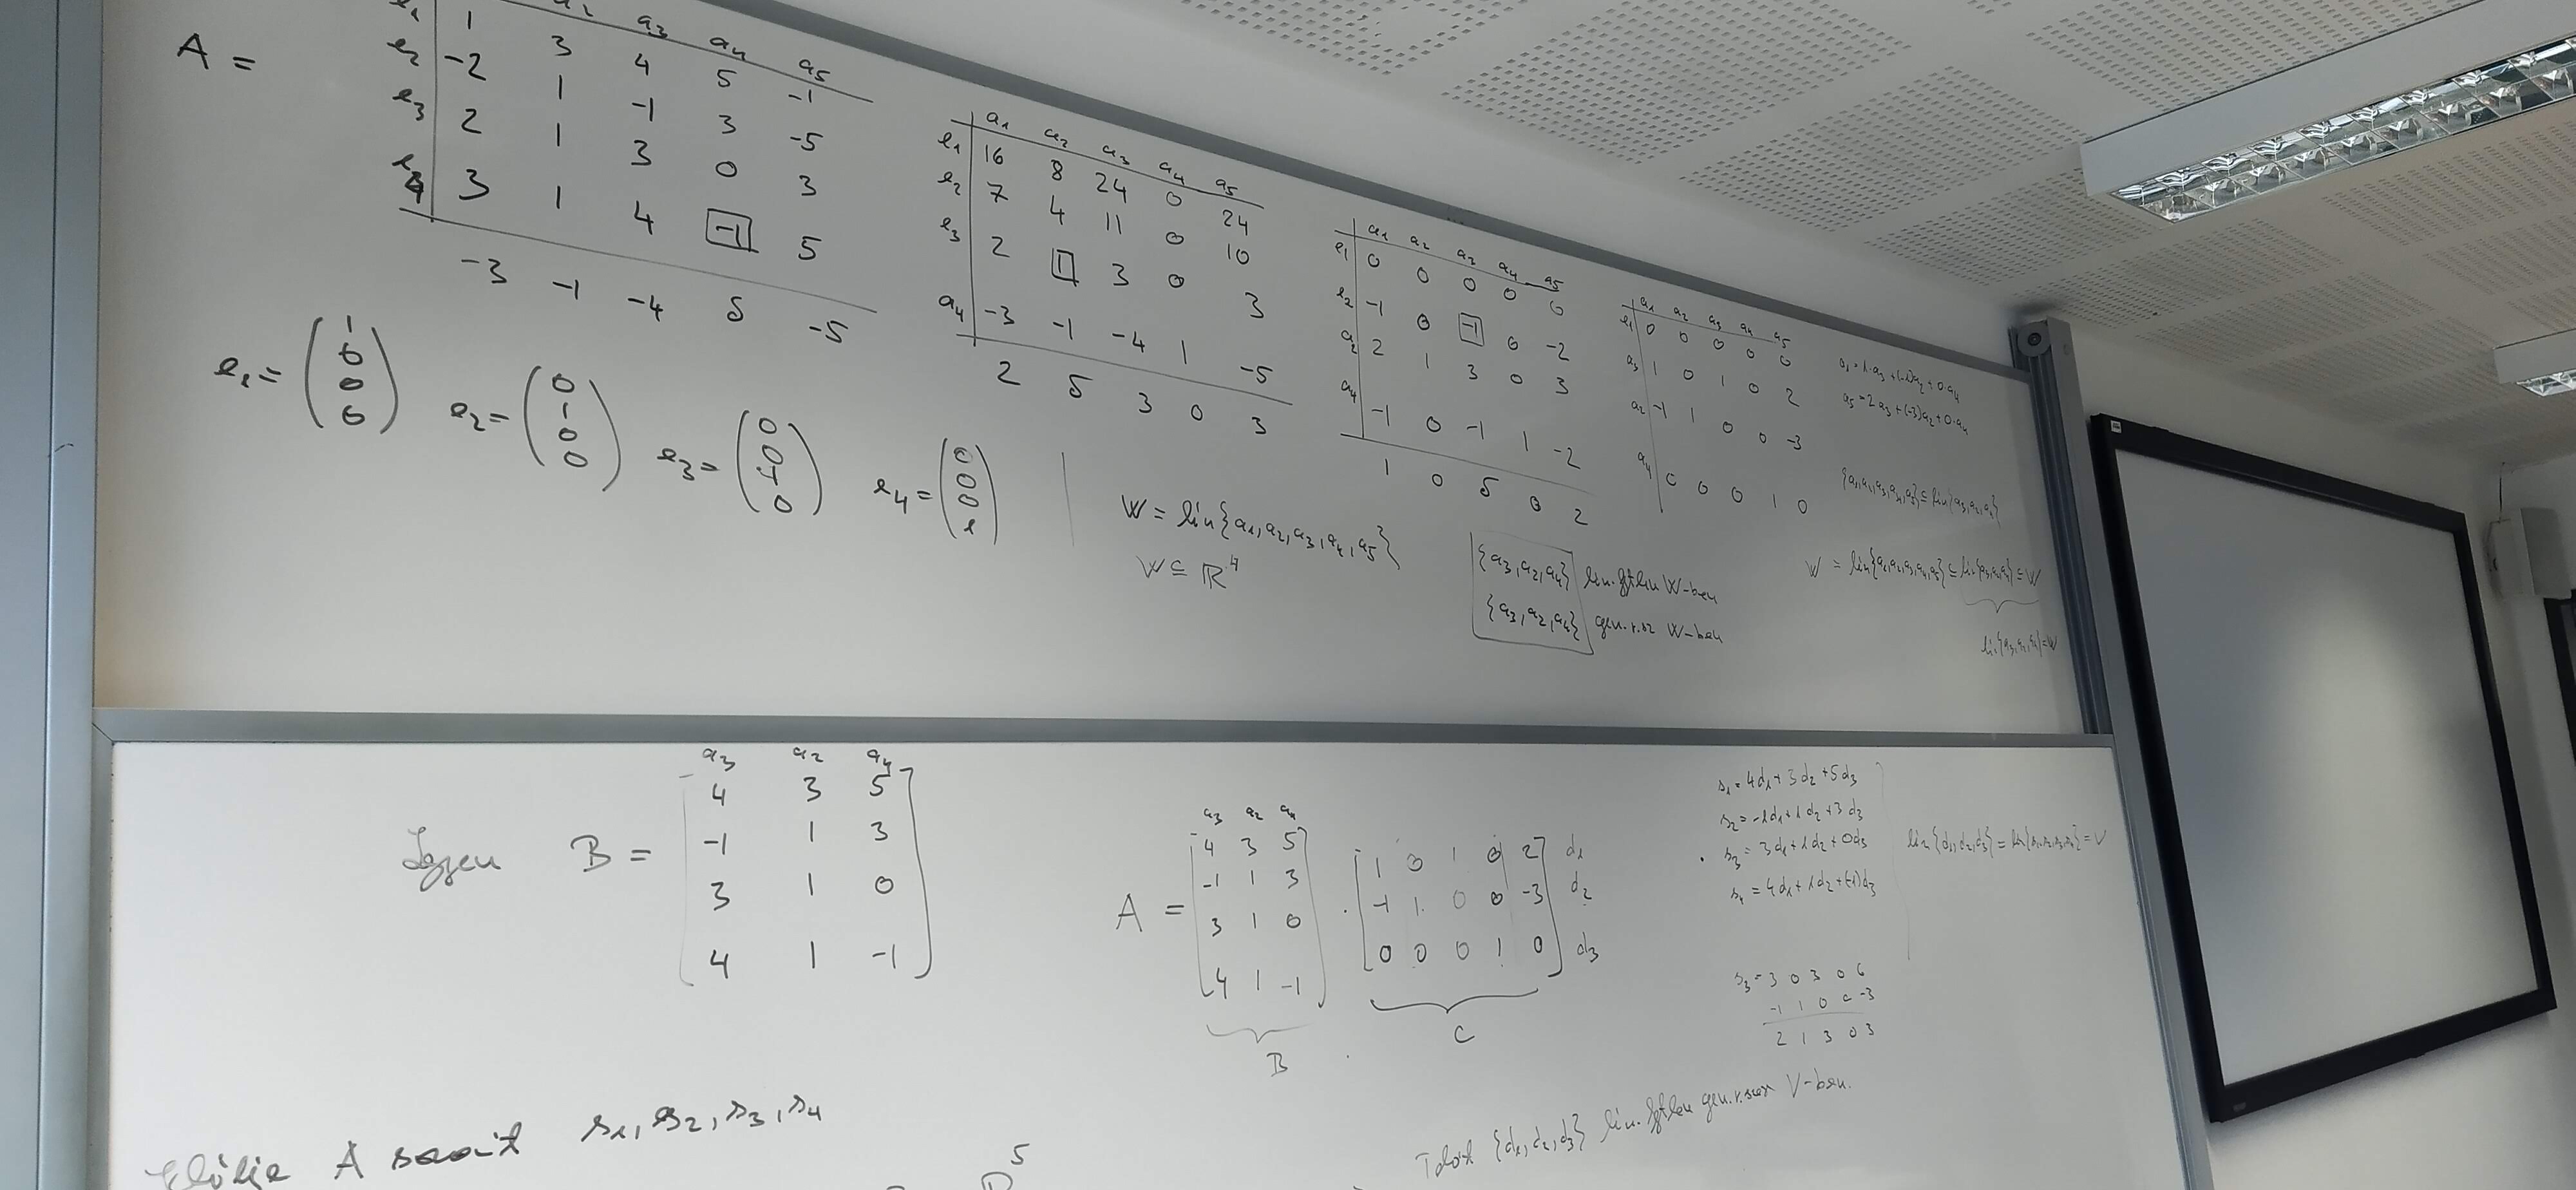 A =
a2 a3 a4 a5
e1 1 3 4 5 -1
e2 -2 1 -1 3 -5
e3 2 1 3 0 3
e4 3 1 4 -1 5
-3 -1 -4 δ -5
a1 a2 a3 a4 a5
e1 16 8 24 0 24
e2 7 4 11 0 10
e3 2 1 3 0 3
a4 -3 -1 -4 1 -5
2 δ 3 0 3
a1 a2 a3 a4 a5
e1 0 0 0 0 0
e2 -1 0 -1 0 -2
a2 2 1 3 0 3
a4 -1 0 -1 1 -2
1 0 δ 0 2
a1 a2 a3 a4 a5
e1 0 0 0 0 0
a3 1 0 1 0 2
a2 -1 1 0 0 -3
a4 0 0 0 1 0
a1 = 1·a3 + (-1)a2 + 0·a4
a5 = 2·a3 + (-3)a2 + 0·a4
{a1,a2,a3,a4,a5} ⊆ lin{a3,a2,a4}
e1 = (1 0 0 0)
e2 = (0 1 0 0)
e3 = (0 0 1 0)
e4 = (0 0 0 1)
W = lin{a1, a2, a3, a4, a5}
W ⊆ ℝ^4
{a3, a2, a4} lin. ftlen W-ben
{a3, a2, a4} gen.r.sz W-ben
W = lin{a1,a2,a3,a4,a5} ⊆ lin{a3,a2,a4} ⊆ W
lin{a3,a2,a4} = W
Legyen B =
a3 a2 a4
4 3 5
-1 1 3
3 1 0
4 1 -1
A =
a3 a2 a4
4 3 5
-1 1 3
3 1 0
4 1 -1
B
·
1 0 1 0 2 d1
-1 1 0 0 -3 d2
0 0 0 1 0 d3
C
s1 = 4d1 + 3d2 + 5d3
s2 = -1d1 + 1d2 + 3d3
s3 = 3d1 + 1d2 + 0d3
s4 = 4d1 + 1d2 + (-1)d3
lin{d1,d2,d3} = lin{s1,s2,s3,s4} = V
s3 = 3 0 3 0 6
-1 1 0 0 -3
2 1 3 0 3
A sorait s1, s2, s3, s4
5
Tehát {d1, d2, d3} lin. ftlen gen.r.szer V-ben.